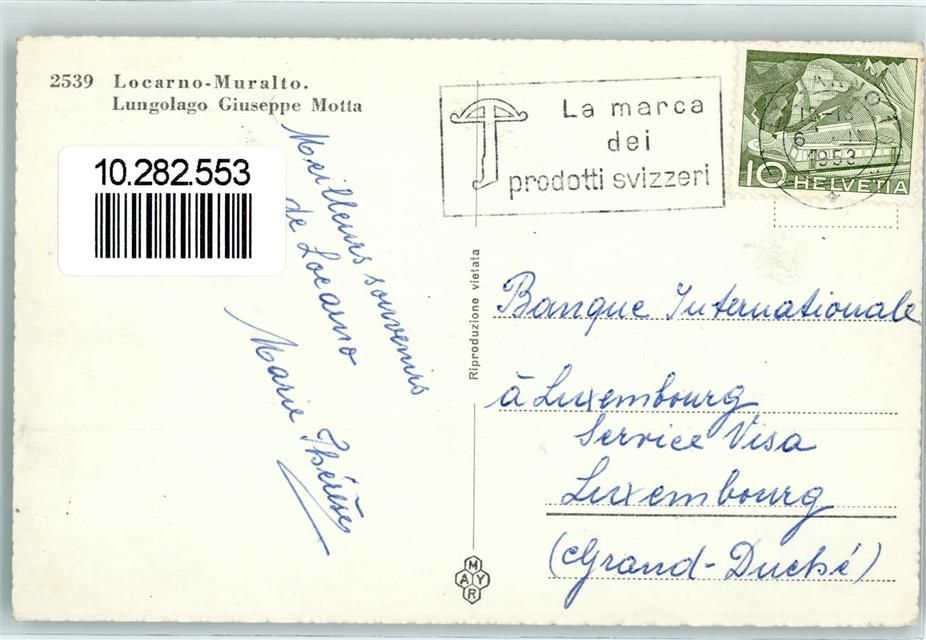 2539 Locarno-Muralto.
Lungolago Giuseppe Motta
10.282.553
Meilleurs souvenirs
de Locarno
Marie Thérèse
La marca
dei
prodotti svizzeri
1953
10 HELVETIA
Riproduzione vietata
Banque Internationale
à Luxembourg
Service Visa
Luxembourg
(Grand-Duché)
MAYR